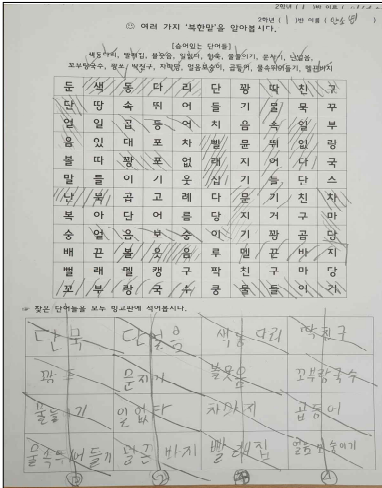 2학년 ( 1 )반 이름 (
☺ 여러 가지 '북한말'을 알아봅시다.
[숨어있는 단어들]
색동다리, 빨래집, 볼웃음, 일없다, 단묵, 물들이기, 문지기, 단얼음,
꼬부랑국수, 짱포, 딱친구, 차마당, 얼음보숭이, 곱등어, 물속뛰어들기, 뺄끈바지
둔 색 동 다 리 단 짱 딱 친 구
단 땅 속 뛰 어 들 기 물 묵 꾸
얼 일 곱 등 어 치 음 속 일 부
음 있 대 포 차 빨 문 뛰 없 랑
볼 따 짱 포 없 래 지 어 다 국
말 들 이 기 웃 십 기 들 단 스
난 묵 곱 고 례 다 문 기 친 차
복 아 단 어 름 당 지 거 구 마
숭 얼 음 보 숭 이 기 짱 곰 당
배 끈 볼 웃 음 루 멜 끈 바 지
뺄 래 멜 캥 구 팍 친 구 마 당
꼬 부 랑 국 수 쿵 물 들 이 기
☞ 찾은 단어들을 모두 빙고판에 적어봅시다.
단묵 단얼음 색동다리 딱친구
문지기 볼웃음 꼬부랑국수
물들이기 일없다 곱등어
물속뛰어들기 멜끈바지 빨래집 얼음보숭이
① ② ④